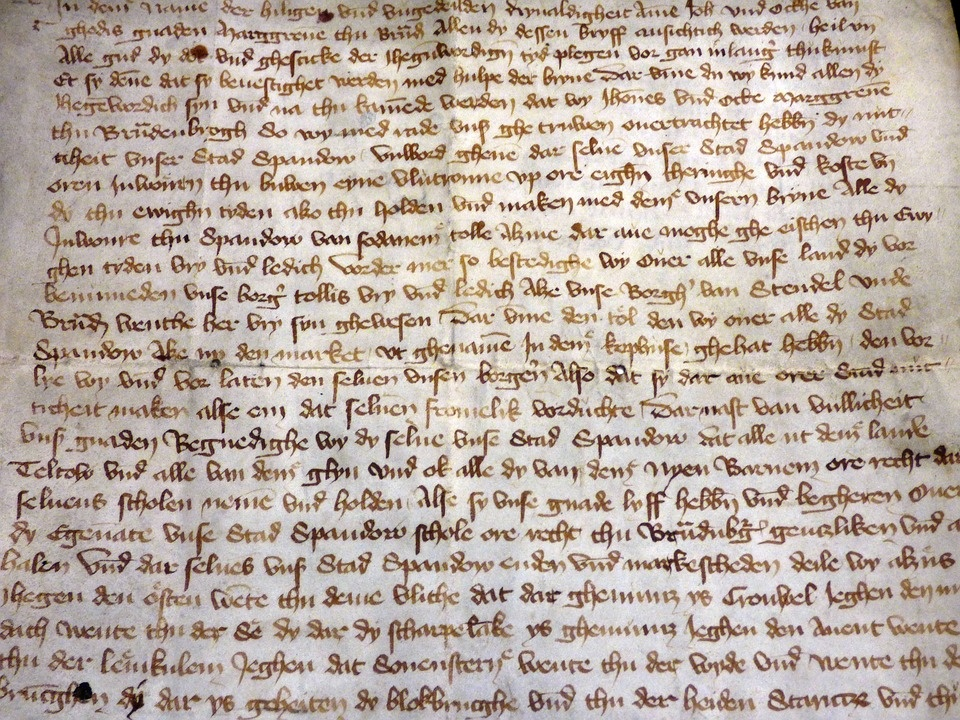 In deme name der hiligen vnd vngedeilden dryualdigheit Ame Joh vnd Ocke van
ghodis gnaden Marggreue thu Brud Allen dy dessen bryff ansichtich werden heil vn
Alle gud dy vnd ghescicke der Jhegenwordign tyd plegen vor gan in langer thukunft
Et sy dene dat sy beuestighet werden med hulpe der bryue Dar vme du wy kund allen dy
Jhegewordich syn vnd na thu kamende werden dat wy Johnes vnd Ocke Marggreue
thu Brudenbrogh So wy med rade vnß ghe truwen ouertrachtet hebbn dy nut
ticheit vnser Stad Spandow vulword gheuen dar selue vnser Stad Spandow vnd
oren Inwonren thu buwen eyne vlutronne vp ore eighn theringhe vnd koste vn
dy thu ewighn tyden also thu holden vnd maken med deme vnsern bryue Alle dy
Inwonre thu Spandow van sodaneme tolle alzme dar aue moghe ghe eischen thu Ewy
ghen tyden vry vnd ledich vorder mer so bestedighe wy ouer alle vnse land dy vor
benumeden vnse borger tollis vry vnd ledich Alze vnse Borgher van Stendel vnde
Brud wenthe her vry syn ghewesen Dar vme den tol den wy ouer alle dy Stad
Spandow Alze up den market vt ghename In deme kophuse ghehat hebbn den vor
lye wy vnd vor laten den seluen vnsen borgern Also dat sy dar aue orer Stad nut
ticheit maken alse em dat seluen fromelik vorduchte Darnast van vullicheit
vnß gnaden Begnedighe wy dy selue vnse Stad Spandow dat alle ut deme lande
Teltow vnd alle van deme glyn vnd ok alle dy van deme nyen Barnem ore recht dar
seluens scholen neme vnd holden Alse sy vnse gnade lyff hebbn vnd begheren Ouer
dy Egenate vnse Stad Spandow schole ore recht thu Brudnbg gentzliken vnd
halen vnd dar selues vnß Stad Spandow enden vnd markescheden deile wy alzus
Jhegen den osten wente thu deme vlithe dat dar ghenumz ys Crouwel Jeghen den
dach wente thu der Se dy dar dy scharpelake ys ghenumz Jeghen den Auent wente
thu der lemkulem Jeghen dat Souenstern wente thu der wyde vnd wente thu
brugghen dy dar ys geheiten dy blokbrugghe vnd thu der heiden Staritz vnd thu